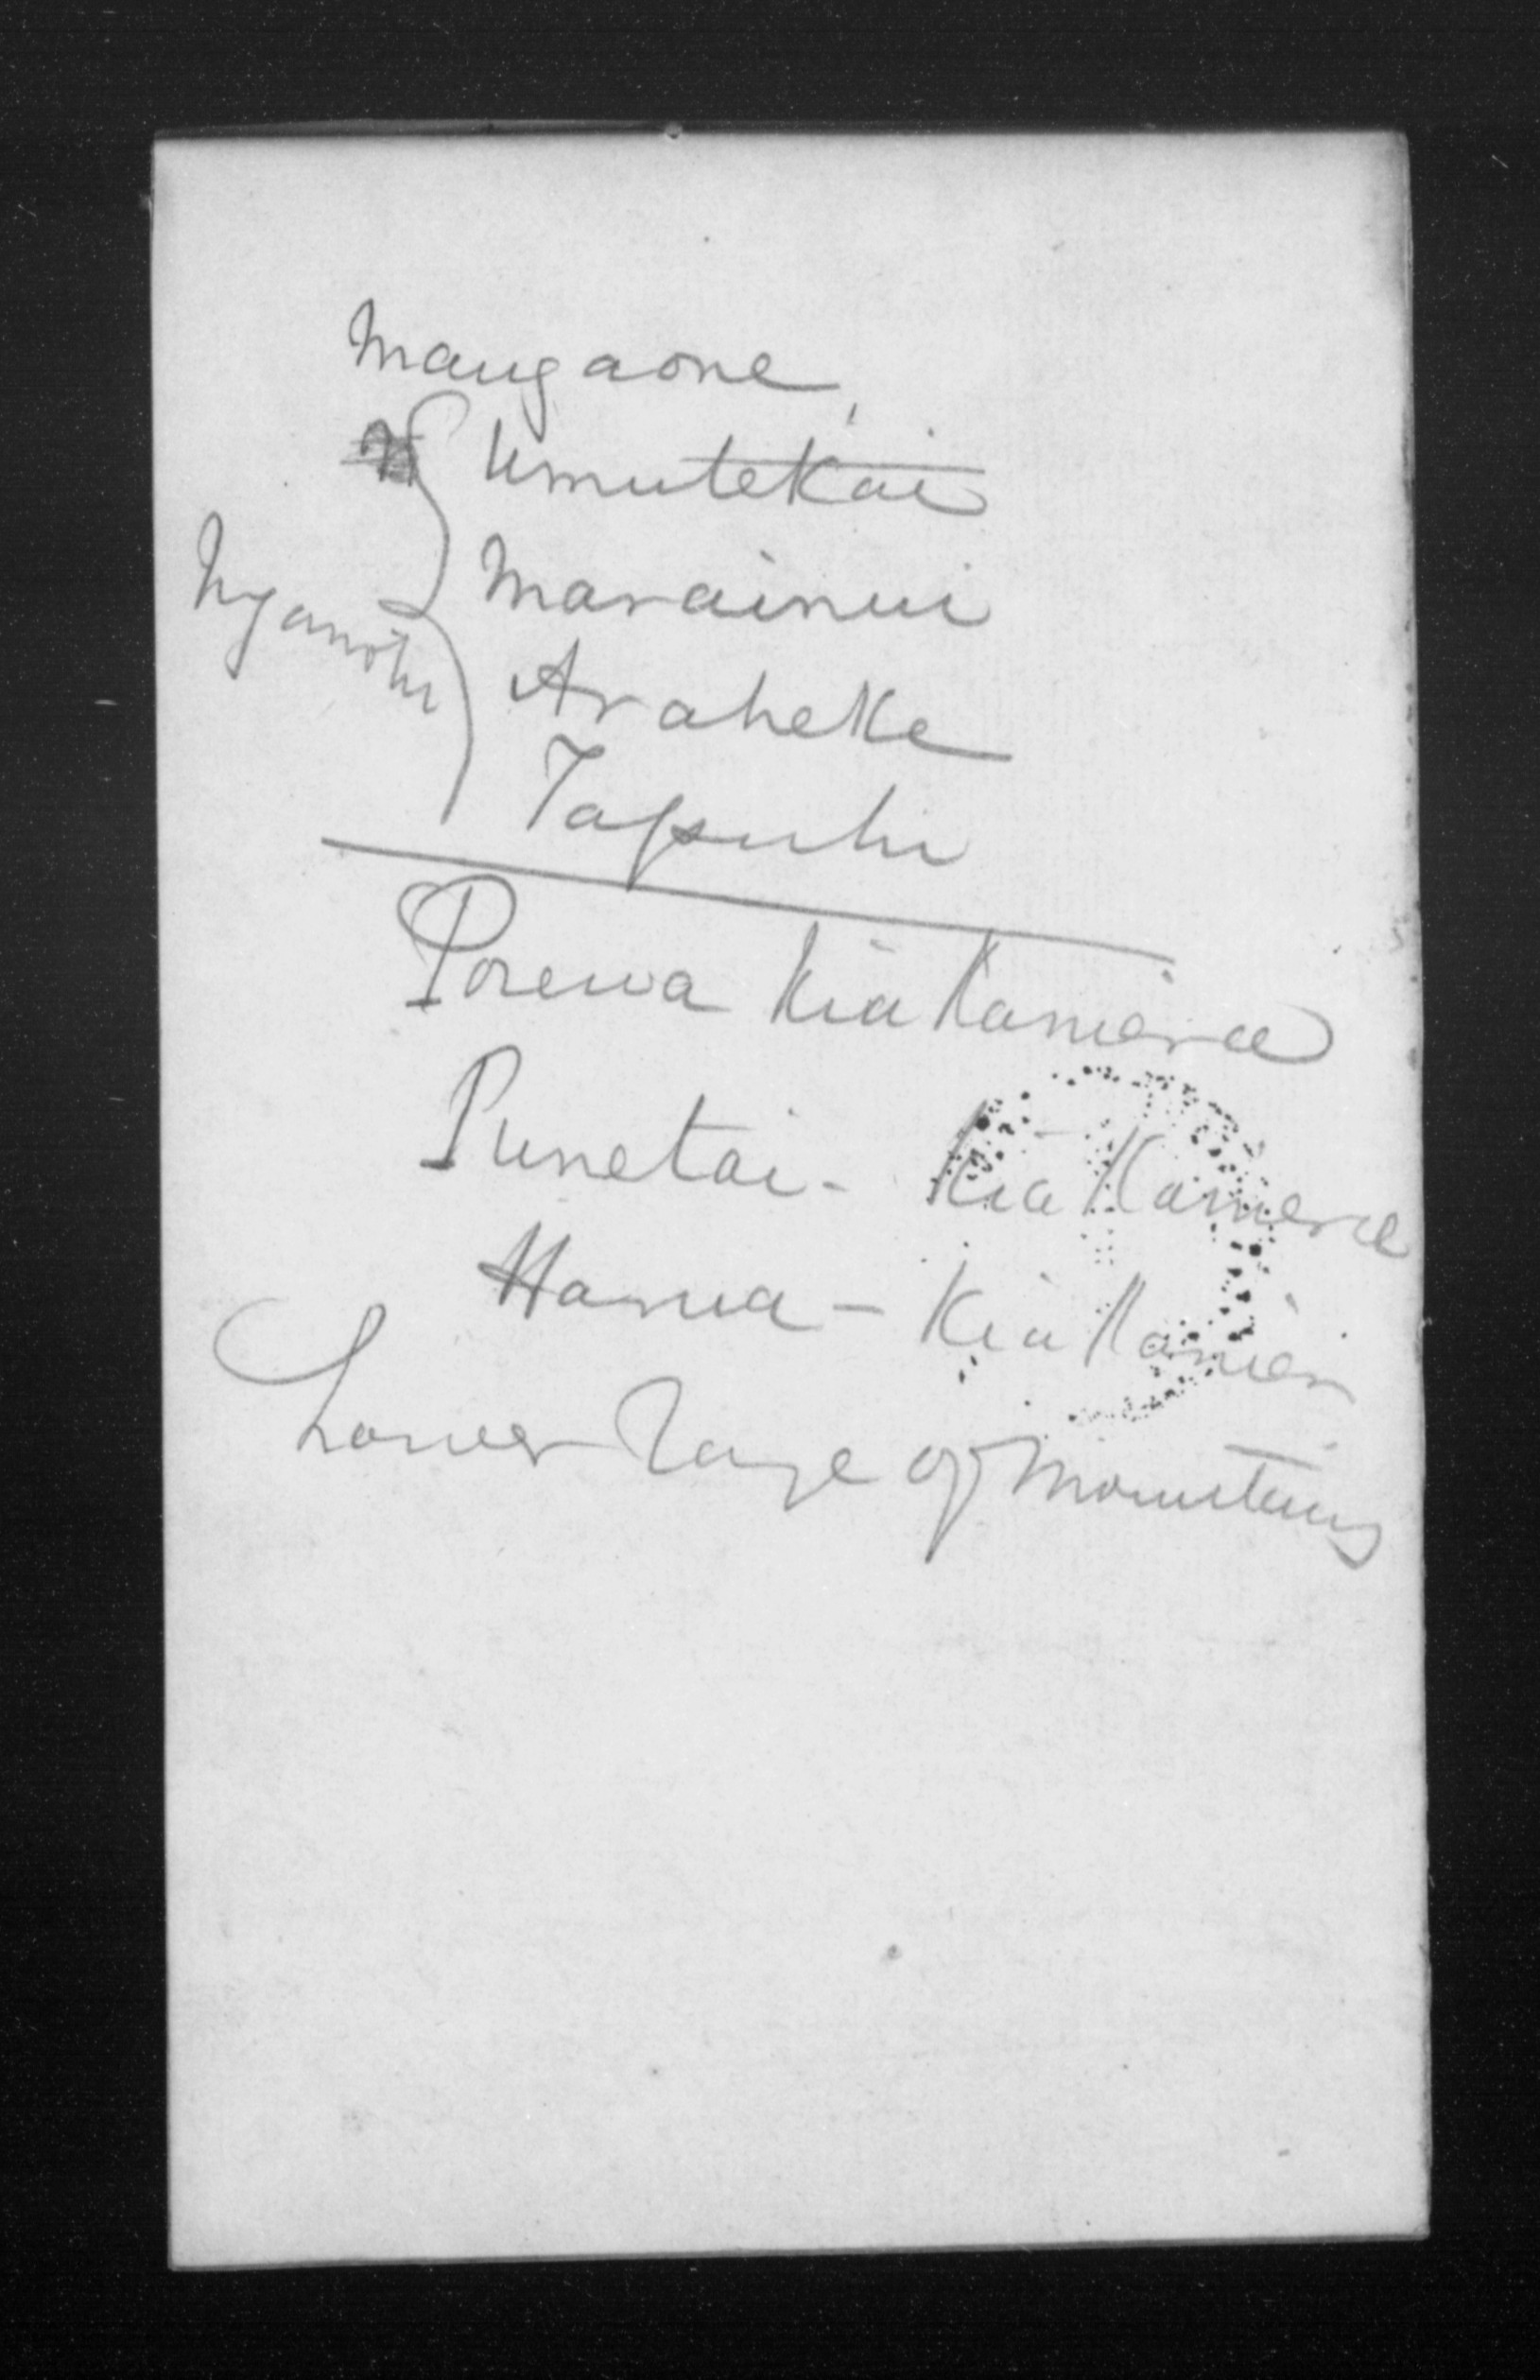 Mangaone,
Umutekai
Marainui
Ngamotu
Araheke
Tapuhi
Porewa Kia Kamera
Punetai - Kia Kamera
Harua - Kia Kamer
Lower Range of Mountains